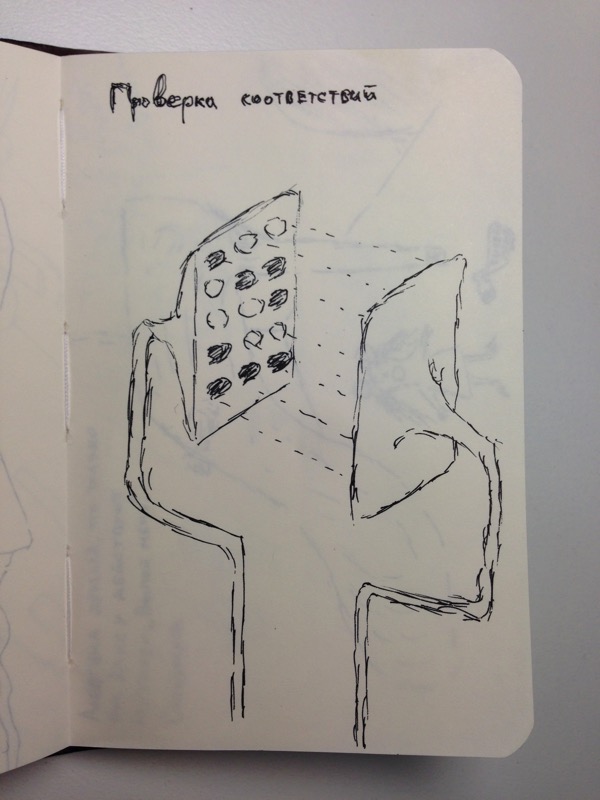 Проверка соответствий